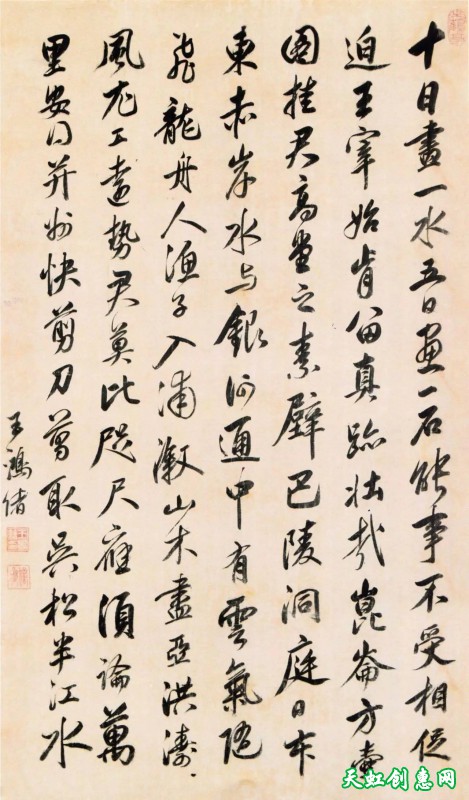 十日畫一水五日畫一石能事不受相促
迫王宰始肯留真跡壯哉崑崙方壺
圖挂君高堂之素壁巴陵洞庭日本
東赤岸水与銀河通中有雲氣隨
飛龍舟人漁子入浦漵山木盡亞洪濤
風尤工遠勢君莫比咫尺應須論萬
里安并州快剪刀剪取吳松半江水
王鴻緒
天虹创惠网